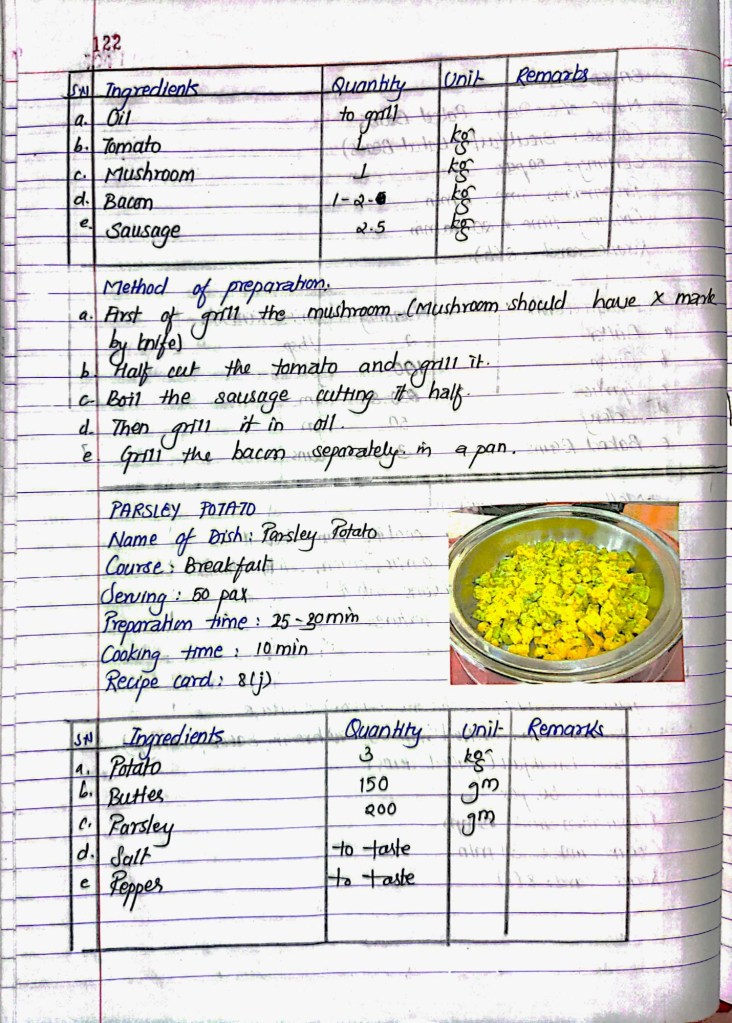 122
SN Ingredients Quantity Unit Remarks
a. Oil to grill
b. Tomato 1 kg
c. Mushroom 1 kg
d. Bacon 1-2- kg
e. Sausage 2.5 kg
Method of preparation.
a. First of grill the mushroom. (Mushroom should have x mark
by knife)
b. Half cut the tomato and grill it.
c- Boil the sausage cutting it half.
d. Then grill it in oil.
e Grill the bacon separately. in a pan.
PARSLEY POTATO
Name of Dish: Parsley Potato
Course: Breakfast
Serving: 50 pax
Preparation time: 25-30min
Cooking time: 10min
Recipe card: 8(j)
SN Ingredients Quantity Unit Remarks
a. Potato 3 kg
b. Butter 150 gm
c. Parsley 200 gm
d. Salt to taste
e Pepper to taste